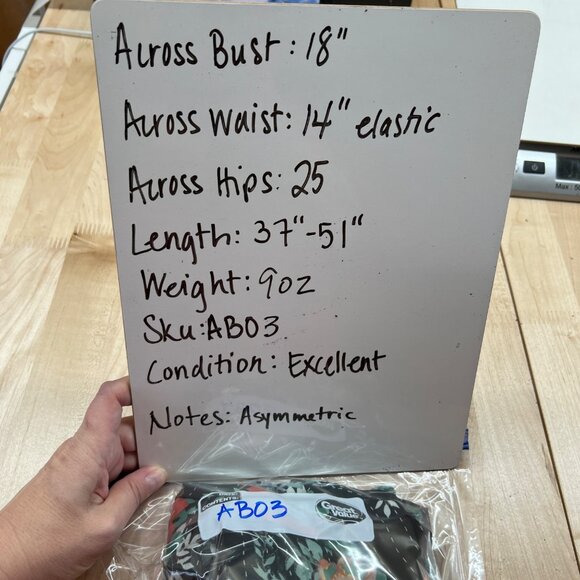 Across Bust: 18"
Across Waist: 14" elastic
Across Hips: 25
Length: 37"-51"
Weight: 9oz
Sku:AB03
Condition: Excellent
Notes: Asymmetric
Max: 50
DATE:
CONTENTS:
AB03
Great Value